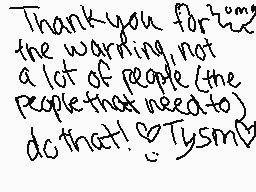 Thank you for
the warning, not
a lot of people (the
people that need to)
do that! ♡ Tysm♡